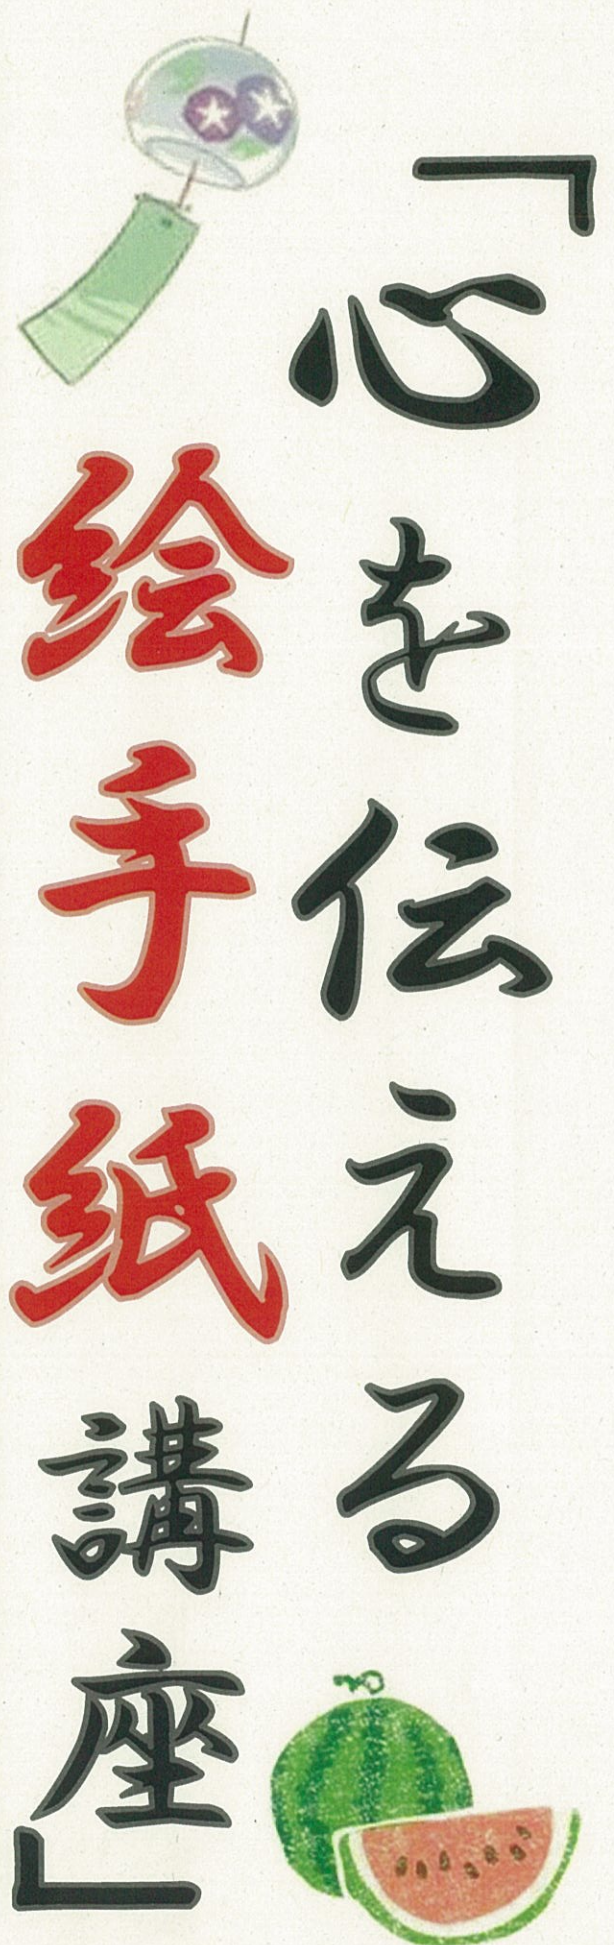 「心を伝える
絵手紙講座」